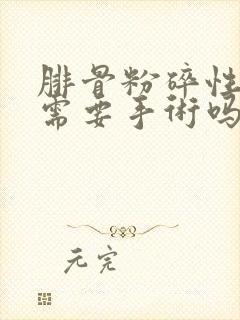 腓骨粉碎性
需要手術吗
元完